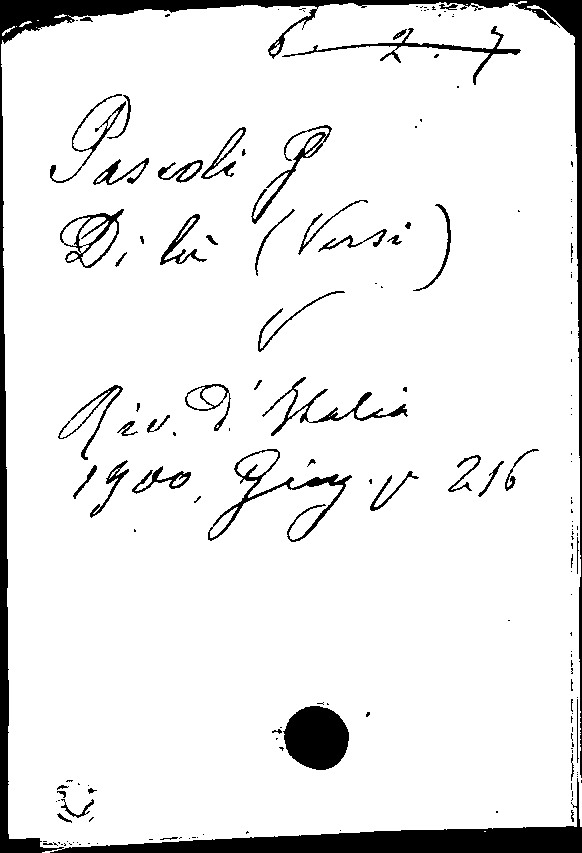 6. 2. 7
Pascoli G
Di là (Versi)
Riv. d'Italia
1900, Giug. p 216